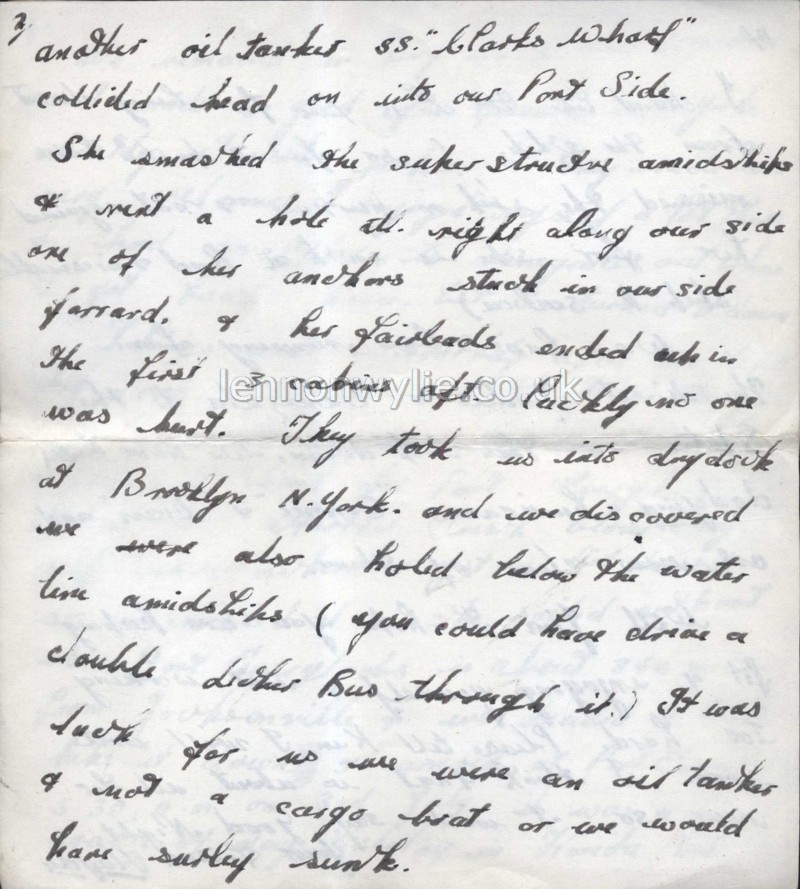 2/.
another oil tanker ss. "Clarks Wharf"
collided head on into our Port Side.
She smashed the super structre amidships
& rent a hole all right along our side
one of her anchors stuck in our side
forrard. & her fairleads ended up in
the first 3 cabins aft. luckly no one
was hurt. They took us into drydock
at Brooklyn N.York. and we discovered
we were also holed below the water
line amidships (you could have drive a
double decker Bus through it.) It was
luck for us we were an oil tanker
& not a cargo boat or we would
have surley sunk.
lennonwylie.co.uk